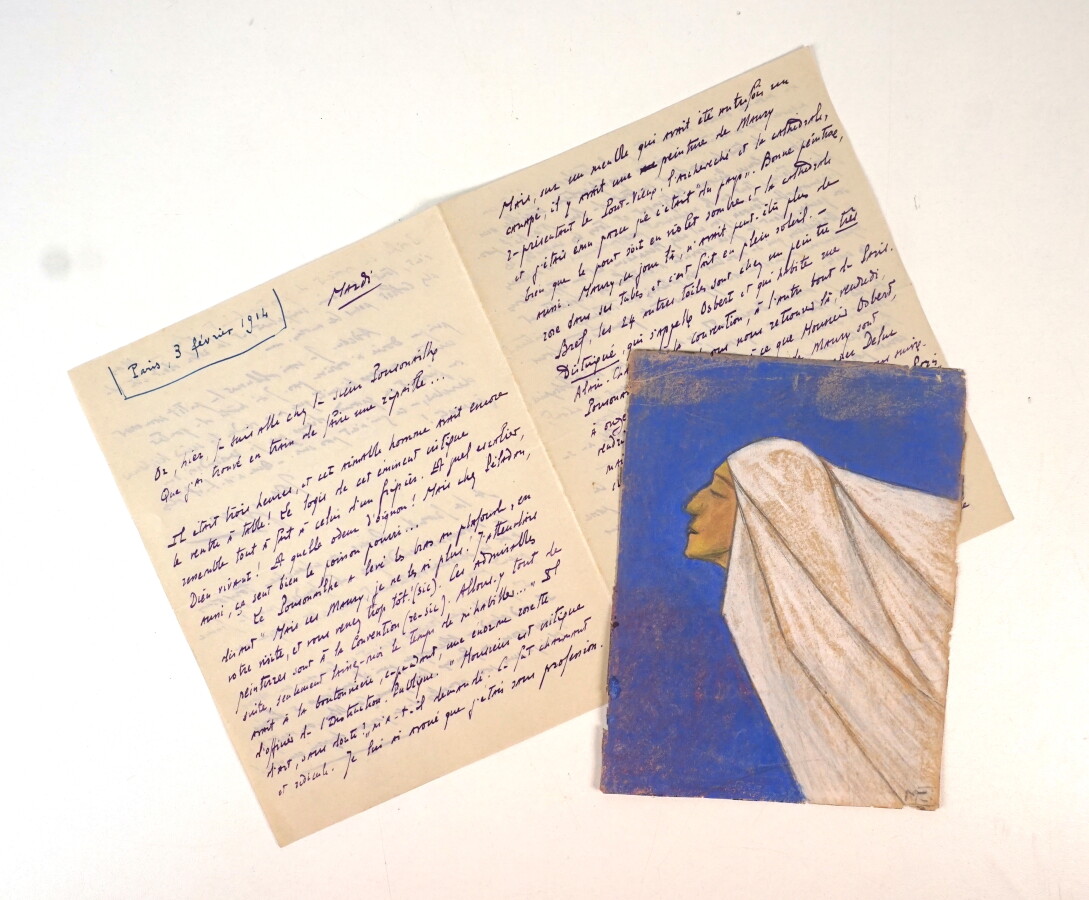 Mardi
Paris, 3 février 1914
Or, hier, je suis allé chez le sieur Ponsonailhe
Que j'ai trouvé en train de faire une ripaille...
Il était trois heures, et cet aimable homme avait encore
le ventre à table! Le logis de cet éminent critique
ressemble tout à fait à celui d'un fripier. Et quel escalier,
Dieu vivant! Et quelle odeur d'oignon! Mais chez Péladan,
aussi, ça sent bien le poisson pourri...
Le Ponsonailhe a levé les bras au plafond, en
disant "Mais ces Maury, je ne les ai plus! J'attendais
votre visite, et vous venez trop tôt! (sic). Ces admirables
peintures sont à la Convention (re-sic). Allons-y tout de
suite, seulement laissez-moi le temps de m'habiller..." Il
avait à la boutonnière, cependant, une énorme rosette
d'officier de l'Instruction Publique. "Monsieur est critique
d'art, sans doute?" m'a-t-il demandé. Ce fut charmant
et ridicule. Je lui ai avoué que j'étais sans profession.
Mais, sur un meuble qui avait été autrefois un
canapé, il y avait une peinture de Maury
représentant le Pont-Vieux, l'archevêché et la cathédrale,
et j'étais ému parce que c'était "du pays". Bonne peinture,
bien que le pont soit en violet sombre et la cathédrale
aussi. Maury, ce jour là, n'avait peut-être plus de
rose dans ses tubes et c'est fait en plein soleil. —
Bref, les 24 autres toiles sont chez un peintre très
Distingué qui s'appelle Osbert et qui habite rue
Alain-Ch la Convention, à l'autre bout de Paris.
Ponsona nous nous retrouver là, vendredi,
à onze à ce que Monsieur Osbert,
vendre de Maury sont
ME